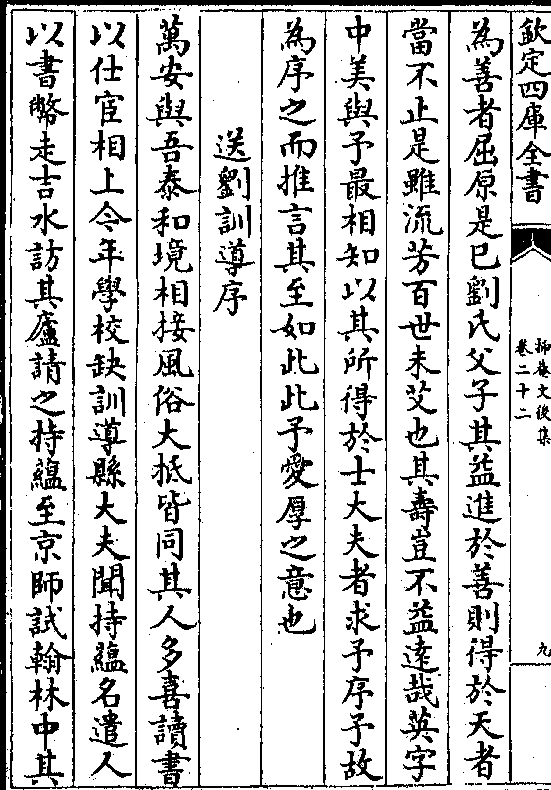 欽定四庫全書
抑菴文後集
卷二十二
九
為善者屈原是已劉氏父子其益進於善則得於天者
當不止是雖流芳百世未艾也其壽豈不益遠哉英字
中美與予最相知以其所得於士大夫者求予序予故
為序之而推言其至如此此予愛厚之意也
送劉訓導序
萬安與吾泰和境相接風俗大抵皆同其人多喜讀書
以仕宦相上今年學校缺訓導縣大夫聞持蘊名遣人
以書幣走吉水訪其廬請之持蘊至京師試翰林中其